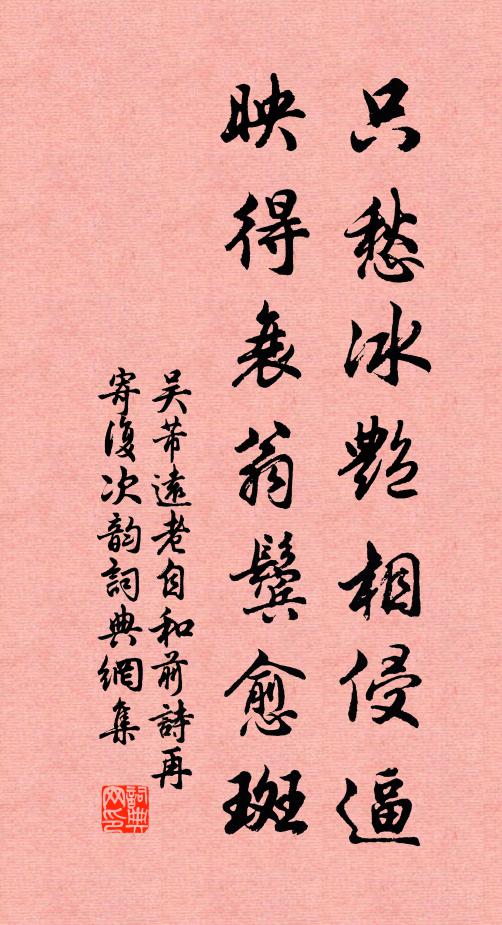 只愁冰艷相侵逼
映得衰翁鬢愈斑
吴芾遠老自和前詩再
寄復次韵詞典網集
詞典網印